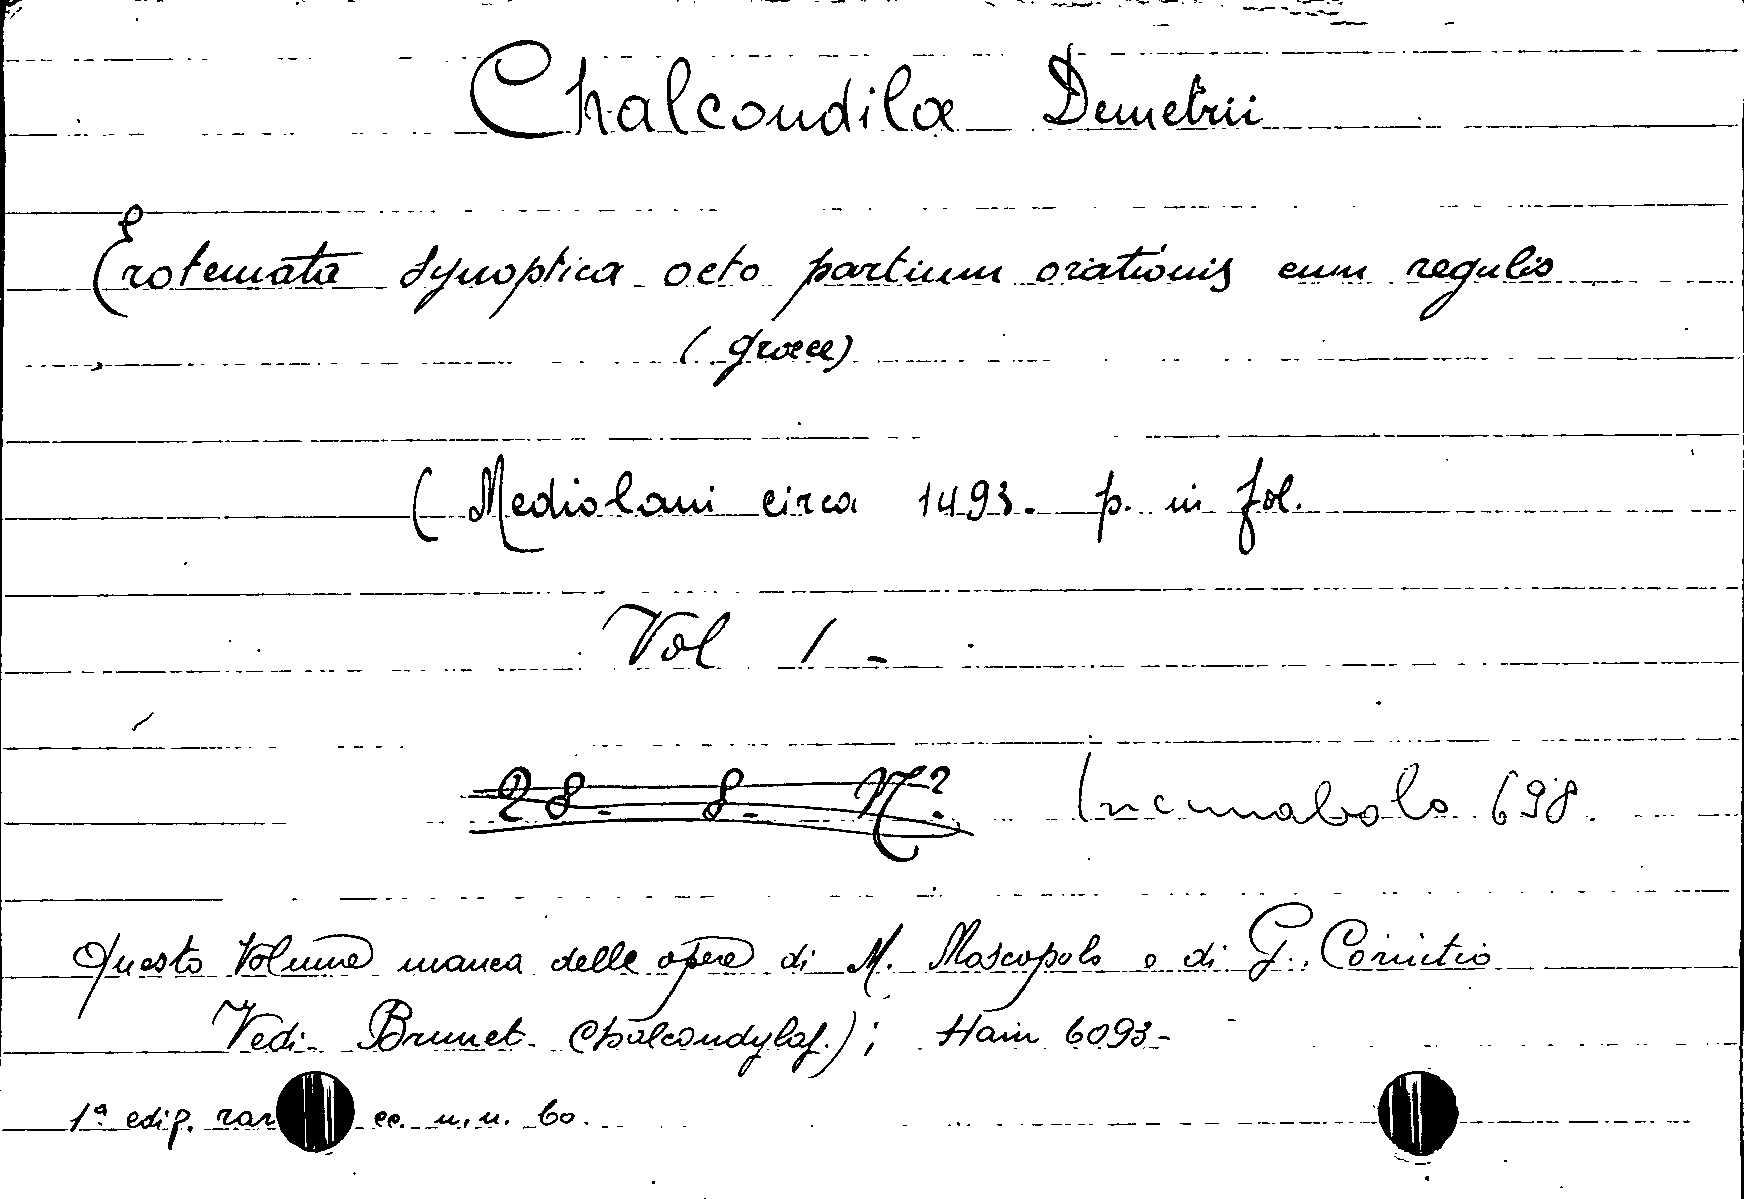 Chalcondilæ Demetrii
Erotemata Synoptica octo partium orationis cum regulis
(græce)
( Mediolani circa 1493. p. in fol.
Vol 1 -
28. 8. Incunabolo 698.
Questo Volume manca delle opere di M. Moscopolo e di G. Corintio
Vedi Brunet Chalcondylas.); Hain 6093-
1ª ediz. cc. n.n. 60.